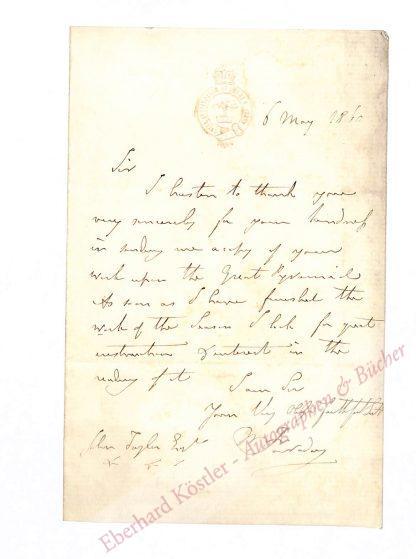 6 May 186
Sir
I hasten to thank you
very sincerely for your kindness
in sending me a copy of your
work upon the Great Pyramid
As soon as I have finished the
work of the Season I look for great
instruction & interest in the
reading of it
I am Sir
Your Obly & faithful St
John Taylor Esqr
M Faraday
Eberhard Köstler - Autographen & Bücher